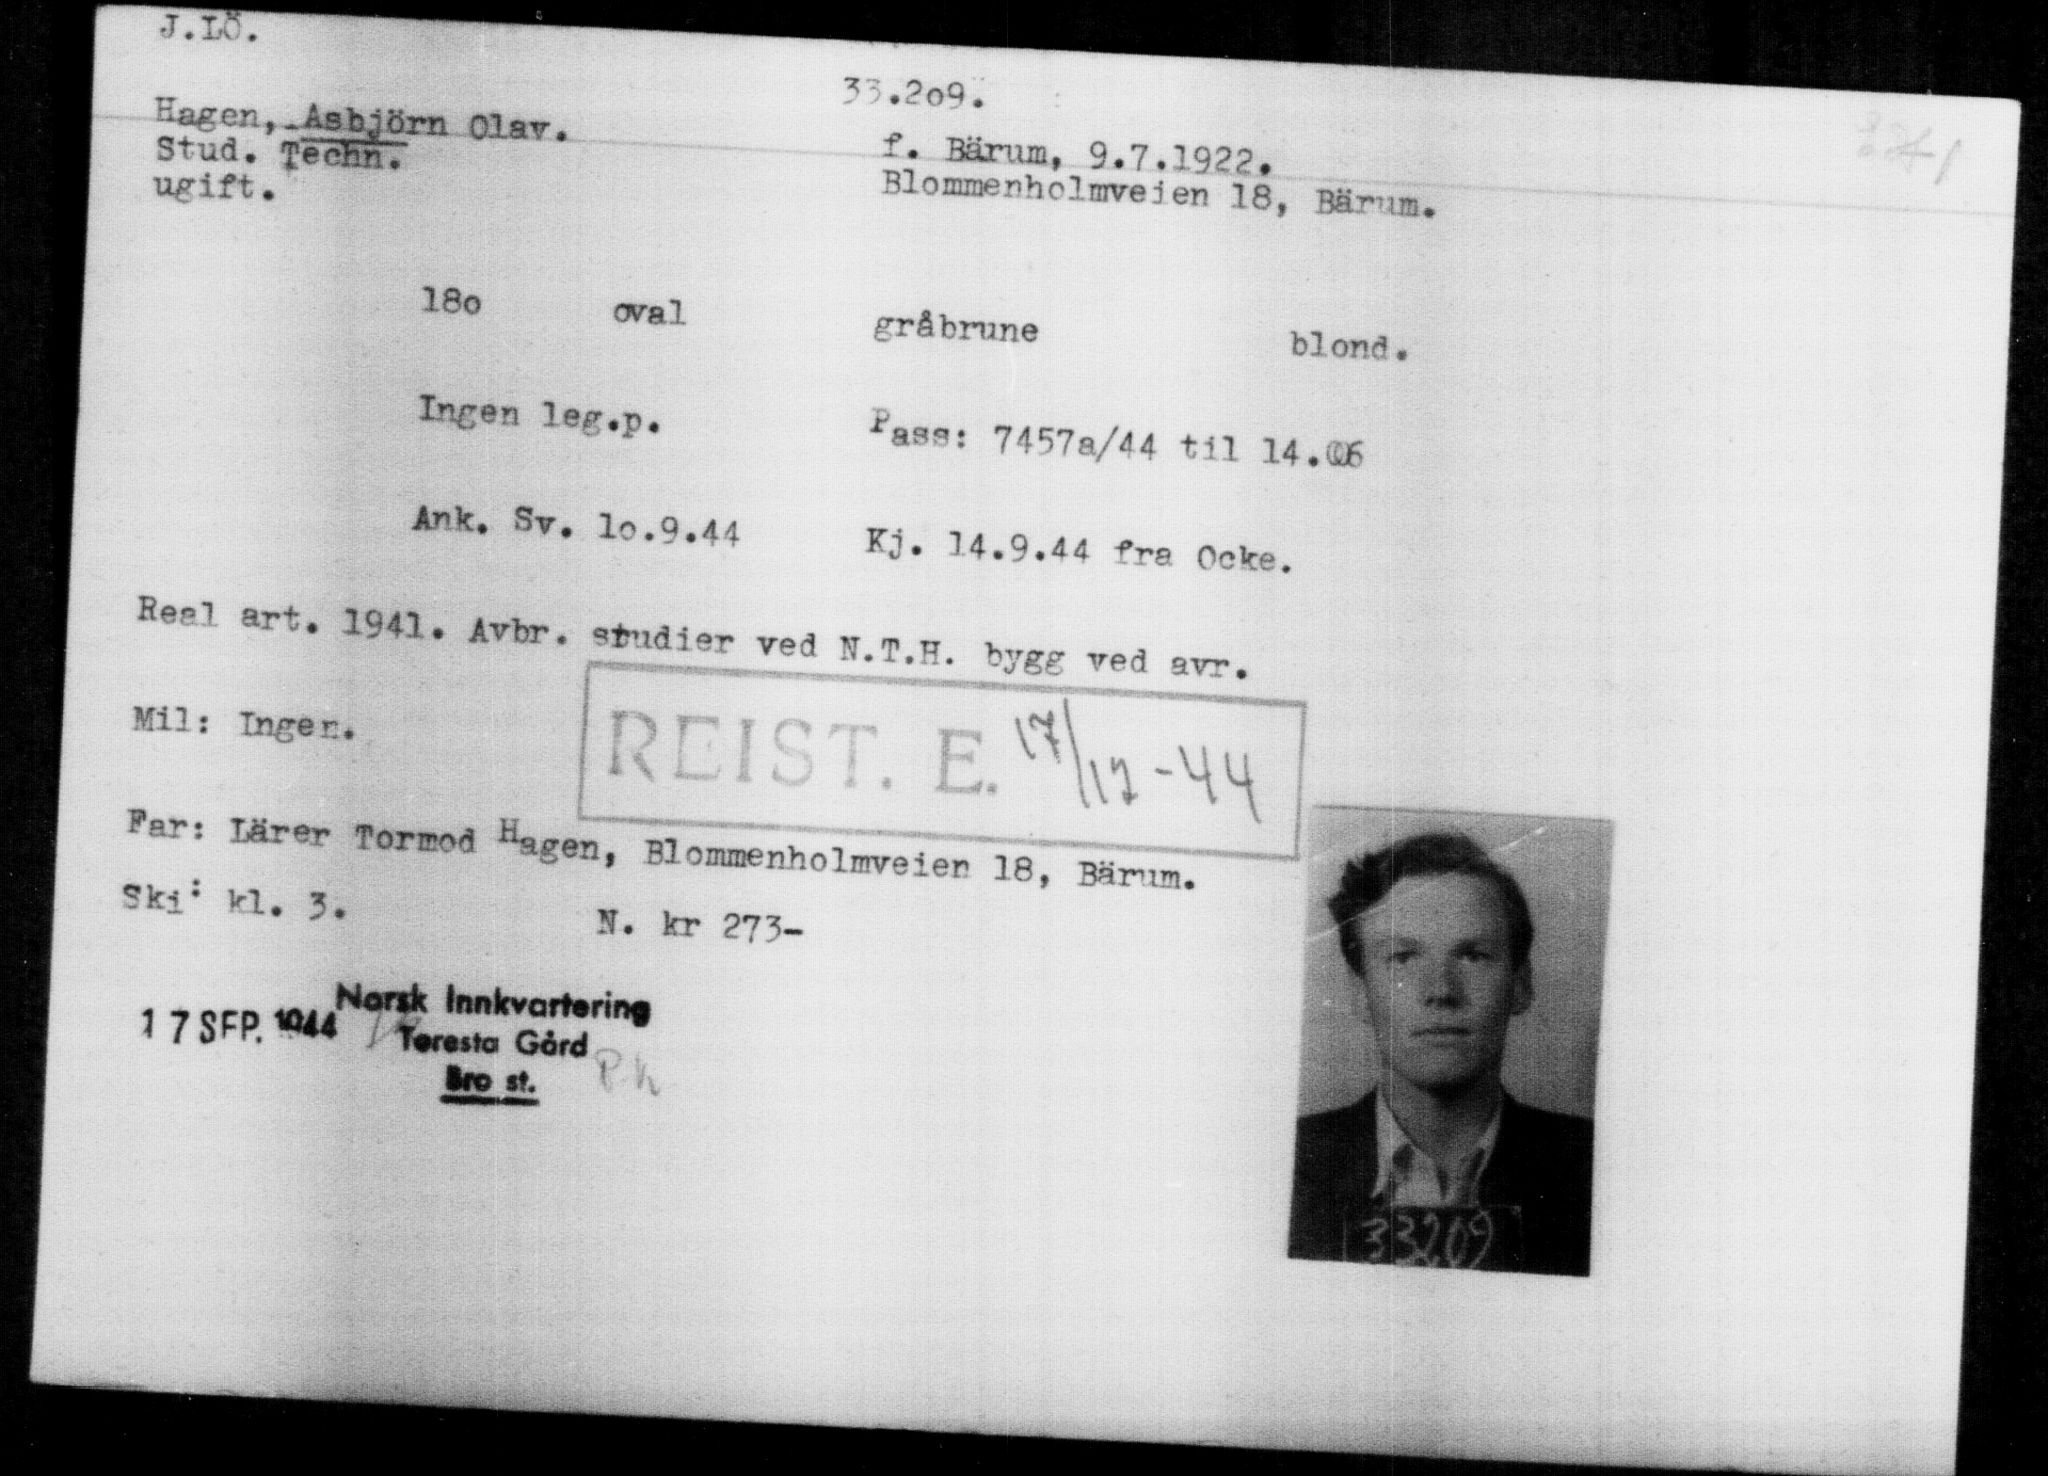 J.LÖ.
33.2o9.
Hagen, Asbjörn Olav.
f. Bärum, 9.7.1922.
Stud. Techn.
Blommenholmveien 18, Bärum.
ugift.
18o oval gråbrune blond.
Ingen leg.p. Pass: 7457a/44 til 14.
Ank. Sv. lo.9.44 Kj. 14.9.44 fra Ocke.
Real art. 1941. Avbr. studier ved N.T.H. bygg ved avr.
Mil: Ingen.
REIST. E. 17/12-44
Far: Lärer Tormod Hagen, Blommenholmveien 18, Bärum.
Ski: kl. 3. N. kr 273-
17 SEP. 1944
Norsk Innkvartering
Teresta Gård
Bro st.
33209